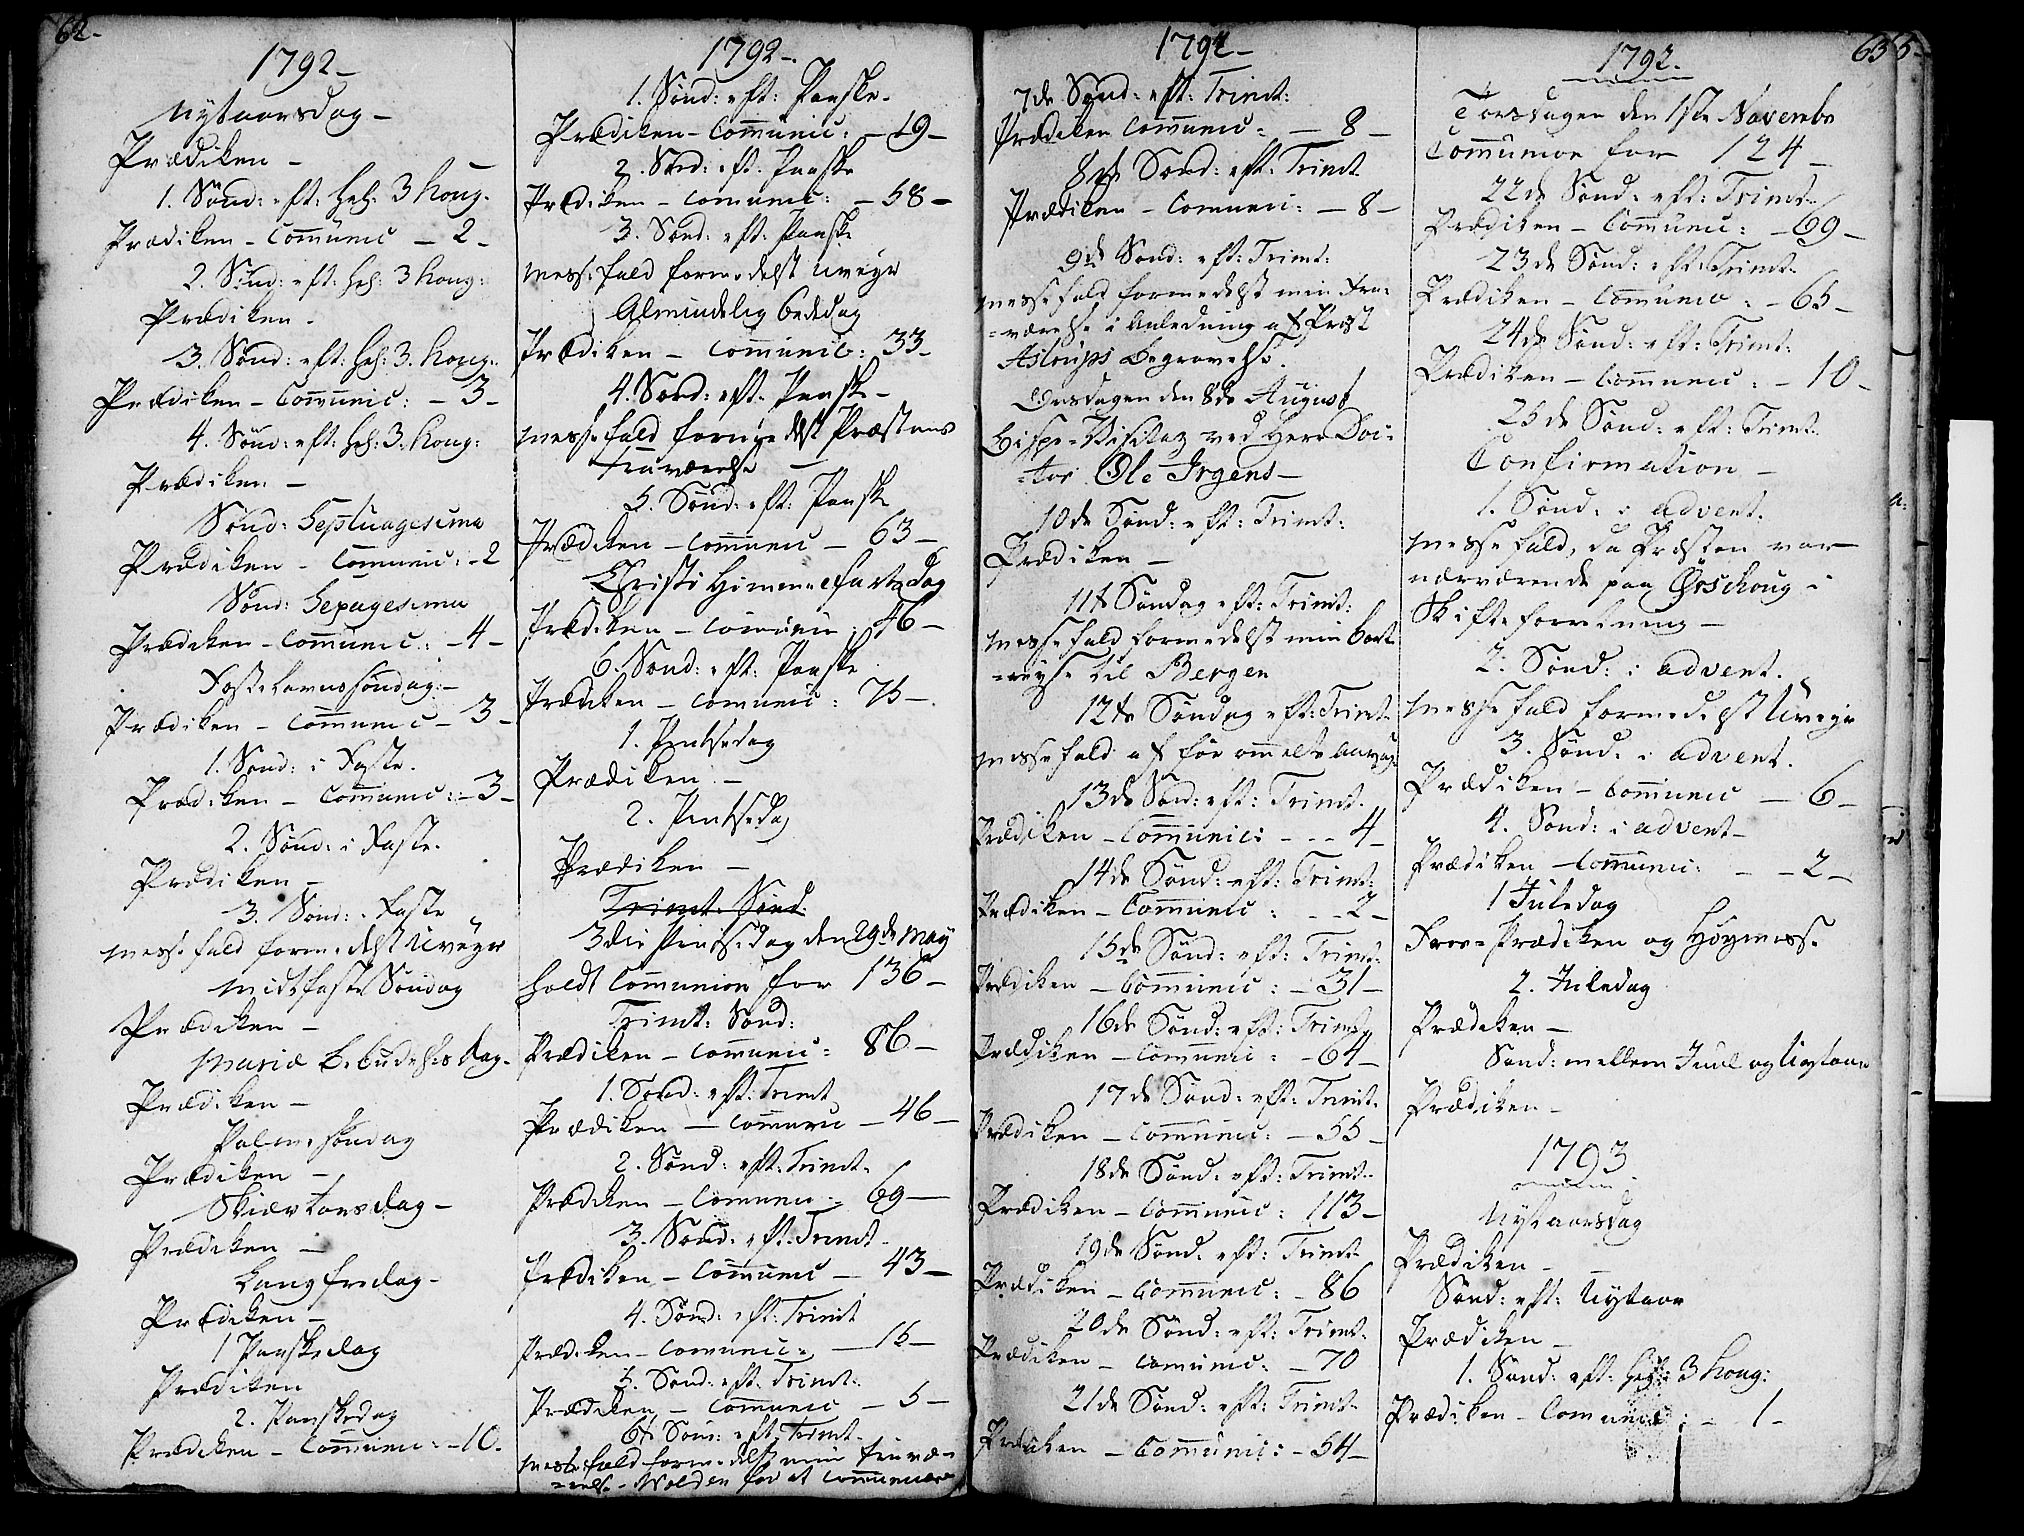 62-
1792-
Nytaarsdag-
Prædiken-
1. Sønd: eft: Hel: 3 Kong-
Prædiken-Communic-2-
2. Sønd: eft: Hel: 3 Kong:
Prædiken-
3. Sønd: eft: Hel: 3. Kong:
Prædiken-Communic:-3-
4. Sønd: eft: Hel: 3. Kong:
Prædiken-
Sønd: Septuagesima
Prædiken-Communic:-2
Sønd: Sexagesima
Prædiken-Communic:-4-
Fastelavnssøndag:-
Prædiken-Communic-3-
1. Sønd: i Faste.
Prædiken-Communic:-3-
2. Sønd: i Faste.
Prædiken-
3. Sønd: i Faste
Messefald formedelst Uveyr
Midtfaste Søndag
Prædiken-
Mariæ Bebudelses dag-
Prædiken-
Palmesøndag
Prædiken-
Skiærtorsdag-
Prædiken-
Langfredag-
Prædiken-
1 Paaskedag
Prædiken
2. Paaskedag
Prædiken-Communic:-10-
1792-
1. Sønd: eft: Paaske-
Prædiken-Communic:-19-
2. Sønd: eft: Paaske
Prædiken-Comunic:-58-
3. Sønd: eft: Paaske
Messefald formedelst Uveyr
Almindelig Bededag
Prædiken-Communic: 33-
4. Sønd: eft: Paaske-
Messefald formedelst Præstens
Fraværelse-
5. Sønd: eft: Paaske
Prædiken-Communic-63-
Christi Himmelfartsdag
Prædiken-Comunic: 46-
6. Sønd: eft: Paaske
Prædiken-Comunic: 75-
1. Pintsedag
Prædiken-
2. Pintsedag
Prædiken-
Trinit: Sønd:
3die Pintsedag den 29de May
holdt Communion for 136-
Trinit: Sønd:
Prædiken-Communic: 86-
1. Sønd: eft: Trinit
Prædiken-Communic-46-
2. Sønd: eft: Trinit-
Prædiken-Comunic: 69-
3. Sønd: eft: Trinit-
Prædiken-Communic-43-
4. Sønd: eft: Trinit
Prædiken-Comunic:-15-
5. Sønd: eft: Trinit:
Prædiken-Communic-5-
6te Sønd: eft: Trinit-
Messefald formedelst min Fravæ-
=relse-Volden for at Communicere
1792-
7de Sønd: eft: Trinit:
Prædiken Communic:-8-
8de Sønd: eft: Trinit
Prædiken-Comunic:-8-
9de Sønd: eft: Trinit:
Messefald formedelst min Fra-
=værelse i Anledning af Præst
Astrups Begravelse.
Onsdagen den 8de August
Bispe-Visitaz ved Herr Doc-
=tor Ole Irgens-
10de Sønd: eft: Trinit:
Prædiken-
11te Søndag eft: Trinit:
Messefald formedelst min Bort-
=reyse til Bergen
12te Søndag eft: Trinit-
Messefald af før ommelte Aarsag:
13de Sønd: eft: Trinit-
Prædiken-Communic:---4-
14de Sønd: eft: Trinit:
Prædiken-Communic:--2-
15de Sønd: eft: Trinit:
Prædiken-Communic:-31-
16de Sønd: eft: Trinit-
Prædiken-Communic:-64-
17de Sønd: eft: Trinit-
Prædiken-Communic:-55-
18de Sønd: eft: Trinit-
Prædiken-Communic: 113-
19de Sønd: eft: Trinit-
Prædiken-Communic:-86
20de Sønd: eft: Trinit-
Prædiken-Comunic:-70
21de Sønd: eft: Trinit-
Prædiken-Communic:-54-
63
1792-
Torsdagen den 1ste Novembr
Communion for 124-
22de Sønd: eft: Trinit-
Prædiken-Communic:-69-
23de Sønd: eft: Trinit-
Prædiken-Communic:-65-
24de Sønd: eft: Trinit:
Prædiken-Communic:-10-
25de Sønd: eft: Trinit-
Confirmation-
1. Sønd: i Advent.
Messefald, da Præsten var
nærværende paa Ørschoug i
Skifteforretning-
2. Sønd: i Advent.
Messefald formedelst Uveyr
3. Sønd: i Advent.
Prædiken-Communic-6-
4. Sønd: i Advent-
Prædiken-Communic:--2-
1 Juledag
Froe=Prædiken og Høymesse
2. Juledag
Prædiken-
Sønd: mellem Juul og Nytaar
Prædiken-
1793
Nytaarsdag
Prædiken-
Sønd: eft: Nytaar
Prædiken-
1. Sønd: eft: Hel: 3 Kong:
Prædiken-Communic:-1-